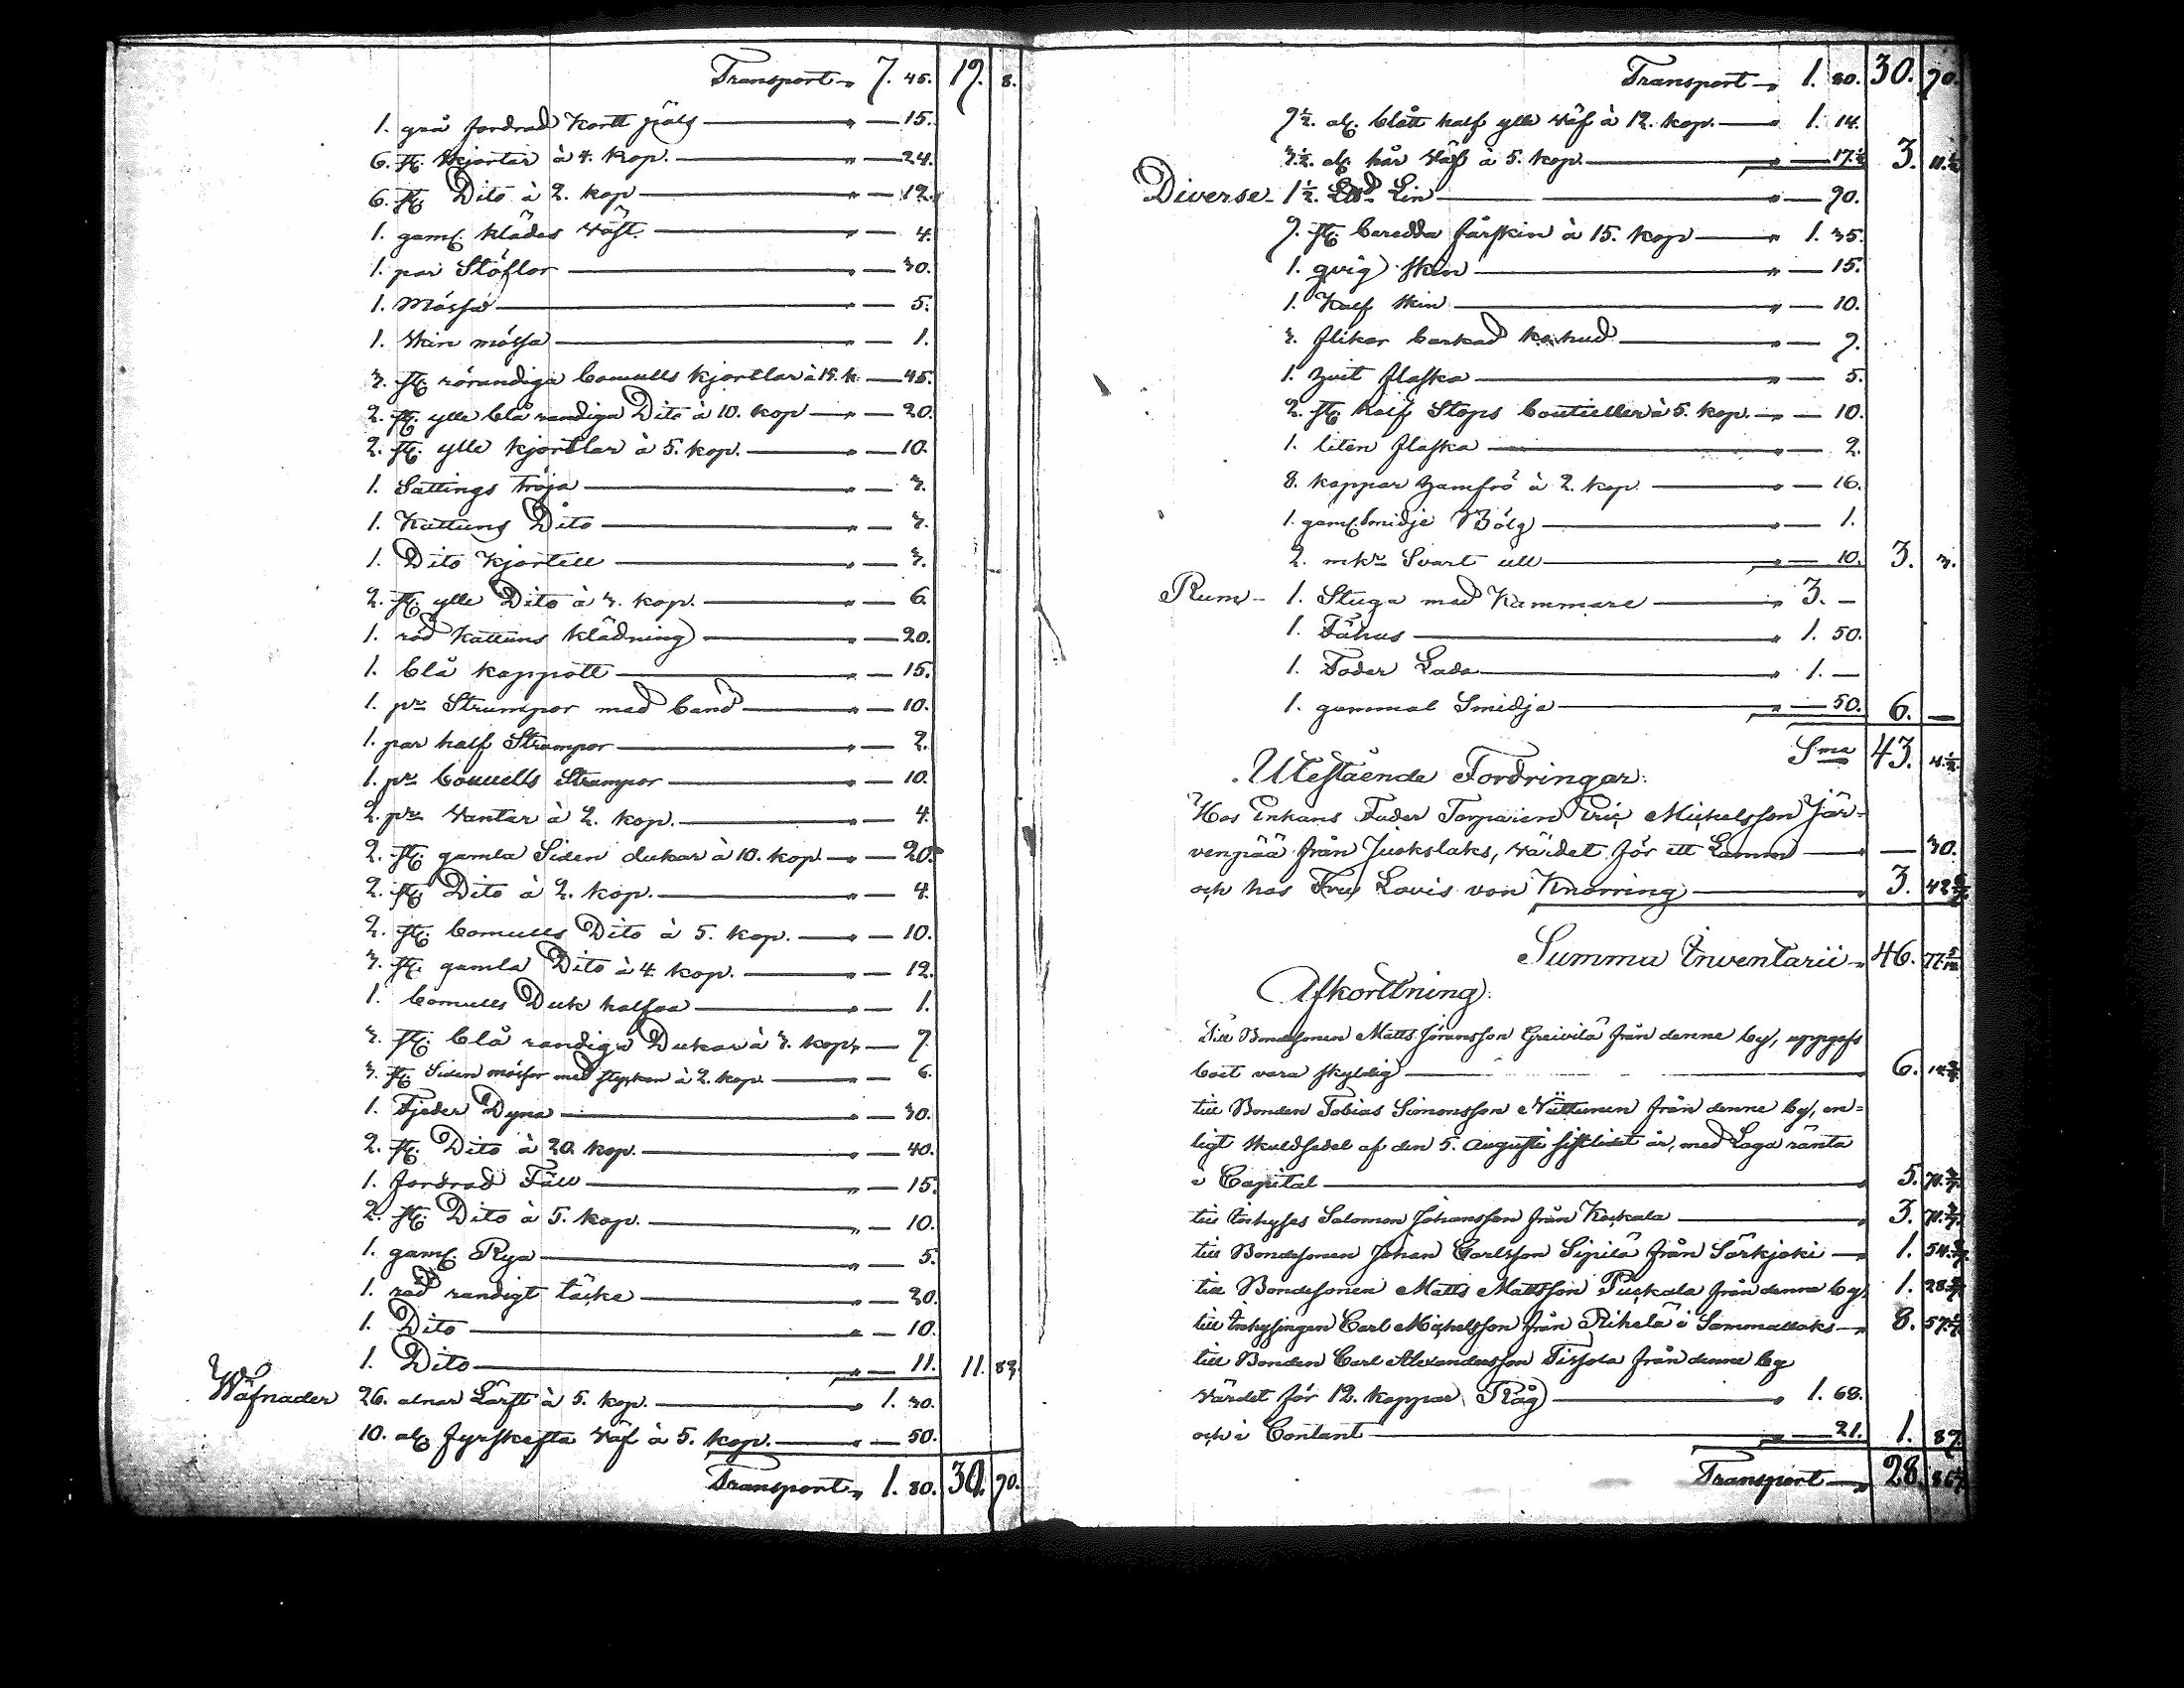 Transport „ 7. 45. 19. 8.
1. grå fordrad Kortt päls — „ — 15.
6. st. Skjortar à 4. kop. — „ — 24.
6. st. Dito à 2. kop — „ — 12.
1. gaml. klädes väst. — „ — 4.
1. par Stöflor — „ — 30.
1. Mössa — „ — 5.
1. Skin mössa — „ — 1.
3. st. rörandiga bomulls kjortlar à 15. k. — 45.
2. st. ylle blå randiga Dito à 10. kop — „ — 20.
2. st. ylle kjortlar à 5. kop. — „ — 10.
1. Sattings tröja — „ — 3.
1. Kattuns Dito — „ — 3.
1. Dito Kjortell — „ — 3.
2. st. ylle Dito à 3. kop. — „ — 6.
1. röd Kattuns klädning — „ — 20.
1. blå kappott — „ — 15.
1. pr Strumpor med band — „ — 10.
1. par half Strumpor — „ — 2.
1. pr bomulls Strumpor — „ — 10.
2. pr Vantar à 2. kop. — „ — 4.
2. st. gamla Siden dukar à 10. kop — „ — 20.
2. st. Dito à 2. kop. — „ — 4.
2. st. bomulls Dito à 5. kop. — „ — 10.
3. st. gamla Dito à 4. kop. — „ — 12.
1. bomulls Duk halfva — „ — 1.
3. st. blå randiga Dukar à 3. kop „ — 9.
3. st. Siden mössor med stycken à 2. kop. — „ — 6.
1. Fjeder Dyna — „ — 30.
2. st. Dito à 20. kop. — „ — 40.
1. fordrad Fäll — „ — 15.
2. st. Dito à 5. kop. — „ — 10.
1. gaml. Rya — „ — 5.
1. röd randigt täcke — „ — 20.
1. Dito — „ — 10.
1. Dito — „ — 11. 11. 82.
Wäfnader 26. alnar Lärft à 5. kop. — „ 1. 30.
10. al. fyrskefta Väf à 5. kop. — „ — 50.
Transport „ 1. 80. 30. 90.
Transport „ 1. 80. 30. 90.
9½. al. blått half ylle väf à 12. kop. — „ 1. 14.
3½. al. hår Väf à 5. kop. — „ — 17.½ 3. 11.½
Diverse - 1½. Lin — „ — 90.
9. st. beredda fårskin à 15. kop — „ 1. 35.
1. qvig skin — „ — 15.
1. Kalf skin — „ — 10.
3. flikar barkad kohud — „ — 9.
1. hvit flaska — „ — 5.
2. st. half Stops boutteller à 5. kop. — „ — 10.
1. liten flaska — „ — 2.
8. kappar hamfrö à 2. kop — „ — 16.
1. gaml. Smidje Bölg — „ — 1.
2. mkr Svart ull — „ — 10. 3. 3.
Rum - 1. Stuga med Kammare — „ 3. —
1. Fähus — „ 1. 50.
1. Foder Lada — „ 1. —
1. gammal Smidja — „ — 50. 6. —
Sma 43. 4.½
Utestående Fordringar:
Hos Enkans Fader Torparen Eric Michelsson Jär-
venpää från Juokslaks, värdet för ett Lamm — — 30.
och hos Fru Lovis von Knorring — „ 3. 42
Summa Inventarii „ 46. 77.
Afkorttning:
Till Bondesonen Matts Göransson Greivilä från denne by, uppgafs
boet vara skyldig — „ 6.
till Bonden Tobias Simonsson från denne by, en-
ligt skuldsedel af den 5. Augusti sistlidet år, med Laga ränta
i Capital — „ 5.
till Inhyses Salomon Johansson från Kockala — „ 3.
till Bondesonen Johan Carlsson Sipilä från Särkjoki — „ 1. 54.
till Bondesonen Matts Mattsson Puckala från denne by. 1. 28.
till Inhysingen Carl Michelsson från Rihelä i Sammallaks — „ 8. 57.
till Bonden Carl Alexandersson Tissola från denne by
värdet för 12. kappar Råg — „ 1. 68.
och i Contant — „ — 21. 1. 89.
Transport — „ 28.